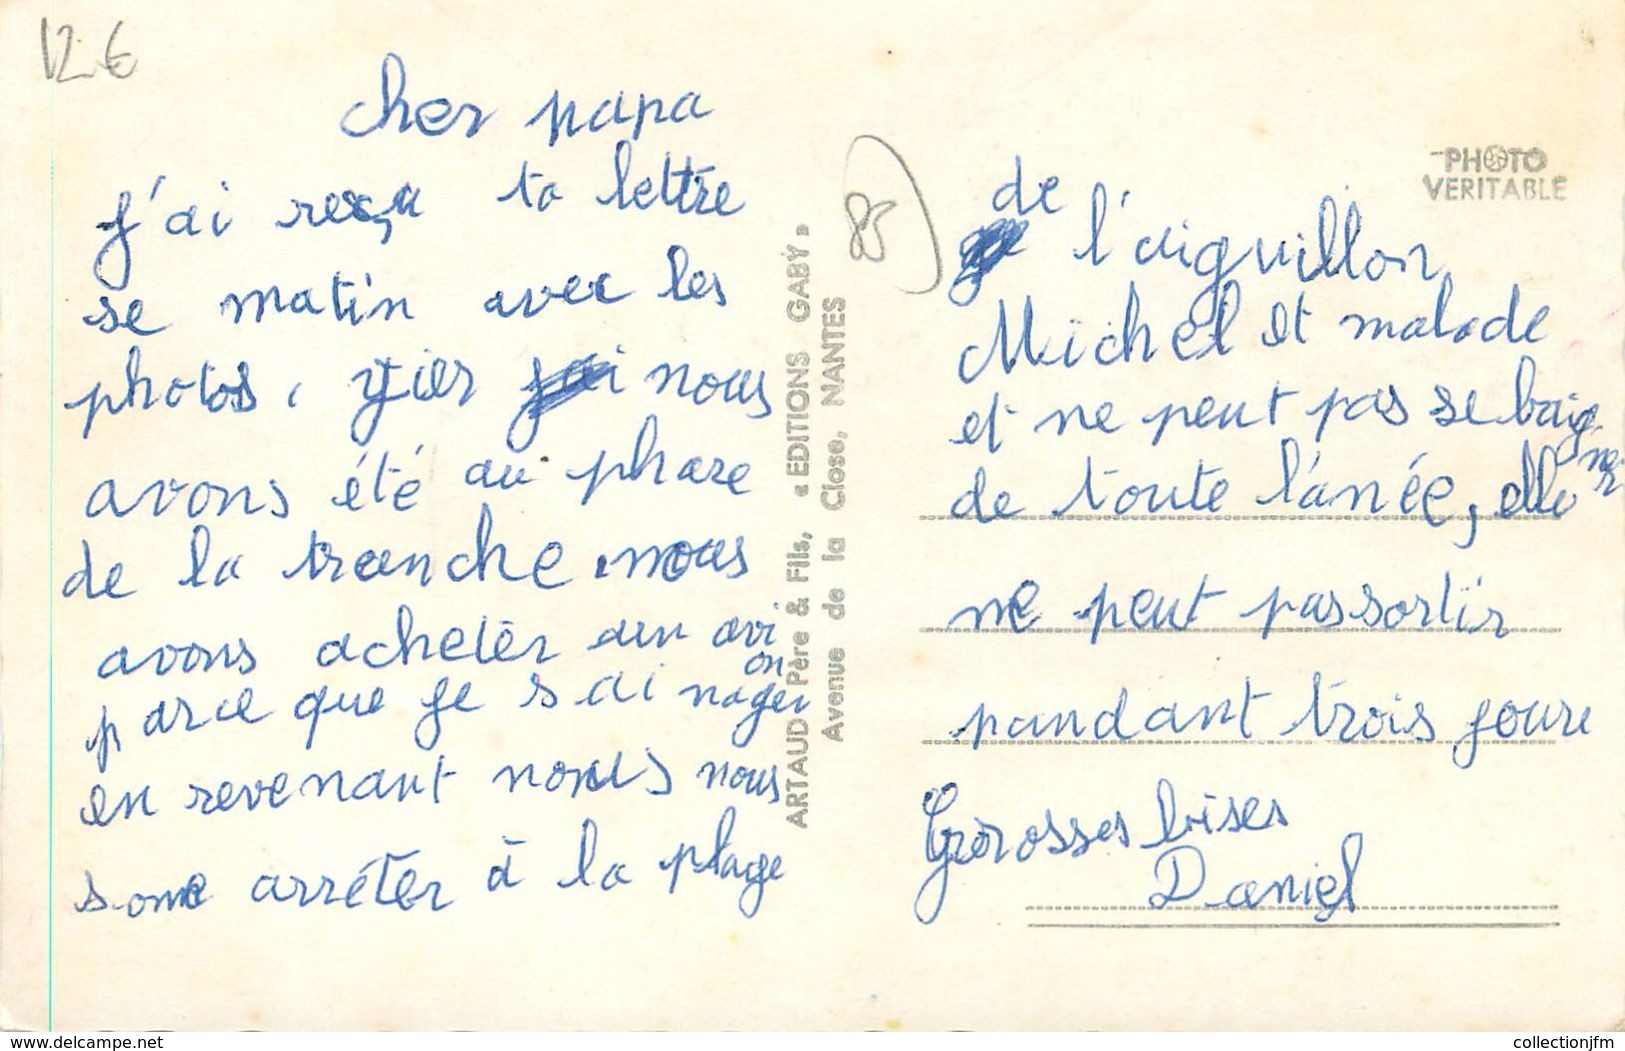 12 €
cher papa
j'ai reçu ta lettre
se matin avec les
photos, yier nous
avons été au phare
de la tranche nous
avons acheter un avi
on
parce que je sai nager
en revenant nous nous
some arréter à la plage
ARTAUD Père & Fils, « EDITIONS GABY »
Avenue de la Close, NANTES
85
PHOTO
VERITABLE
de
l'aiguillon
Michel et malade
et ne peut pas se baig
ner
de toute l'anée, elle
ne peut pas sortir
pandant trois joure
Grosses bises
Daniel
www.delcampe.net
collectionjfm